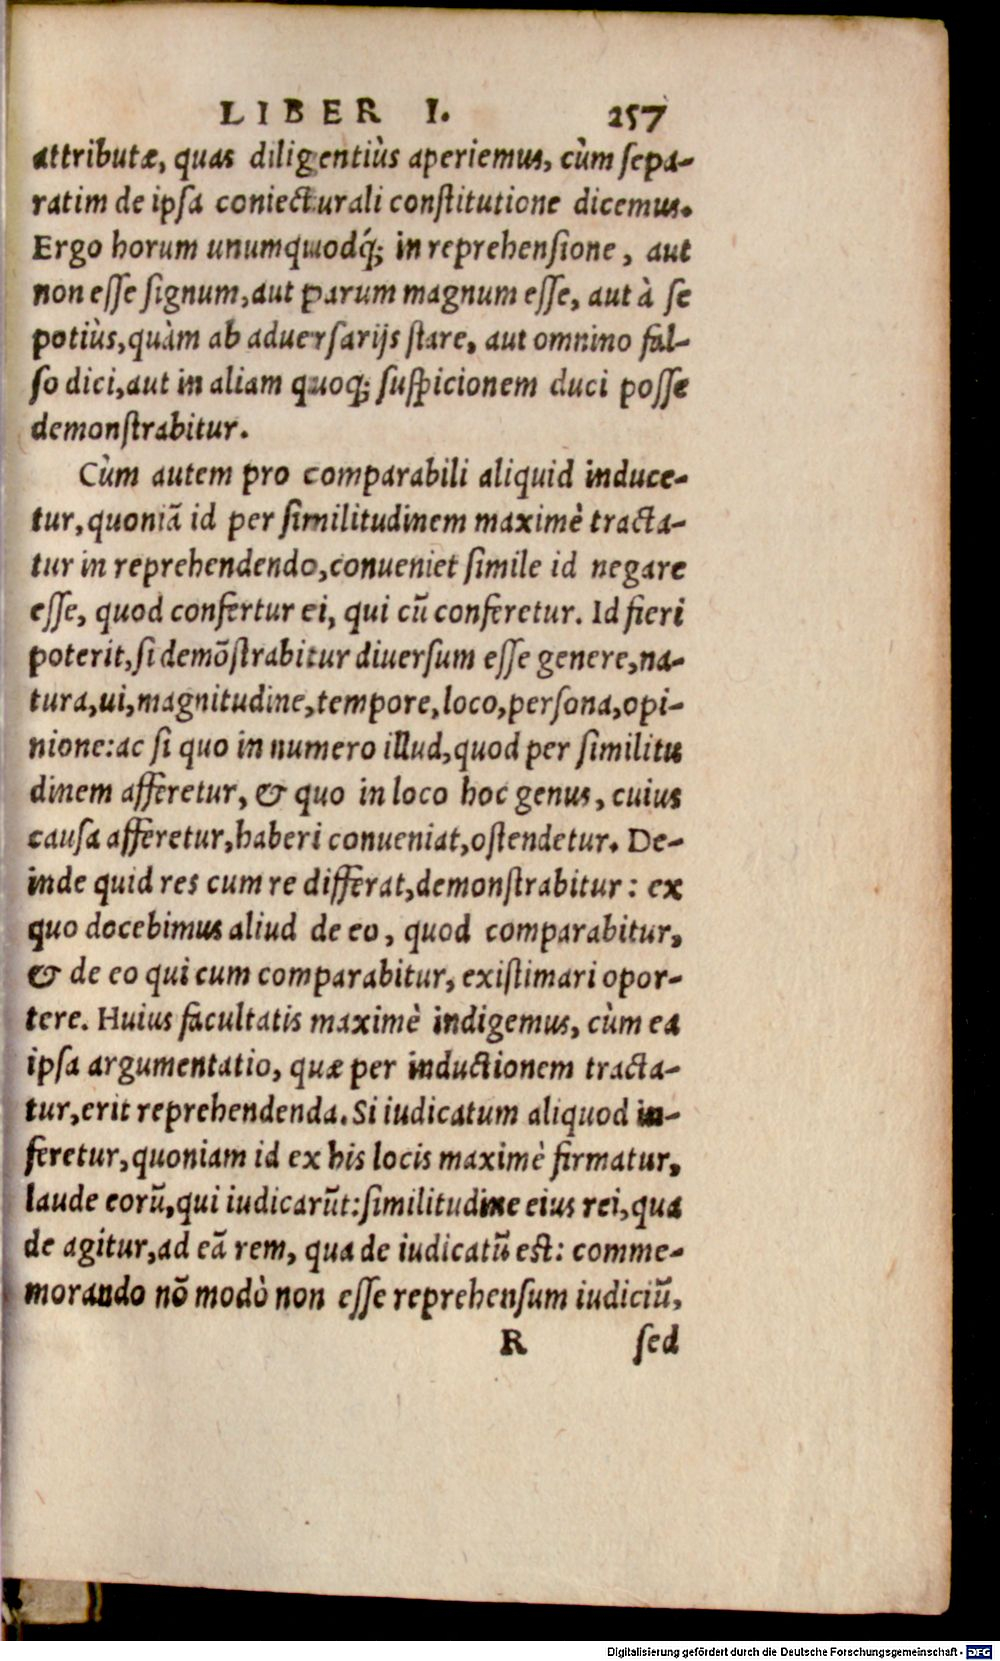 LIBER I. 257
attributæ, quas diligentiùs aperiemus, cùm ſepa-
ratim de ipſa coniecturali conſtitutione dicemus.
Ergo horum unumquodq́; in reprehenſione, aut
non eſſe ſignum, aut parum magnum eſſe, aut à ſe
potiùs, quàm ab aduerſarijs ſtare, aut omnino fal-
ſo dici, aut in aliam quoq; ſuſpicionem duci poſſe
demonſtrabitur.
Cùm autem pro comparabili aliquid induce-
tur, quoniã id per ſimilitudinem maximè tracta-
tur in reprehendendo, conueniet ſimile id negare
eſſe, quod confertur ei, qui cũ conferetur. Id fieri
poterit, ſi demõſtrabitur diuerſum eſſe genere, na-
tura, ui, magnitudine, tempore, loco, perſona, opi-
nione: ac ſi quo in numero illud, quod per ſimilitu
dinem afferetur, & quo in loco hoc genus, cuius
cauſa afferetur, haberi conueniat, oſtendetur. De-
inde quid res cum re differat, demonſtrabitur: ex
quo docebimus aliud de eo, quod comparabitur,
& de eo qui cum comparabitur, exiſtimari opor-
tere. Huius facultatis maximè indigemus, cùm ea
ipſa argumentatio, quæ per inductionem tracta-
tur, erit reprehendenda. Si iudicatum aliquod in-
feretur, quoniam id ex his locis maximè firmatur,
laude eorũ, qui iudicarũt: ſimilitudine eius rei, qua
de agitur, ad eã rem, qua de iudicatũ eſt: comme-
morando nõ modò non eſſe reprehenſum iudiciũ,
R ſed
Digitalisierung gefördert durch die Deutsche Forschungsgemeinschaft - DFG